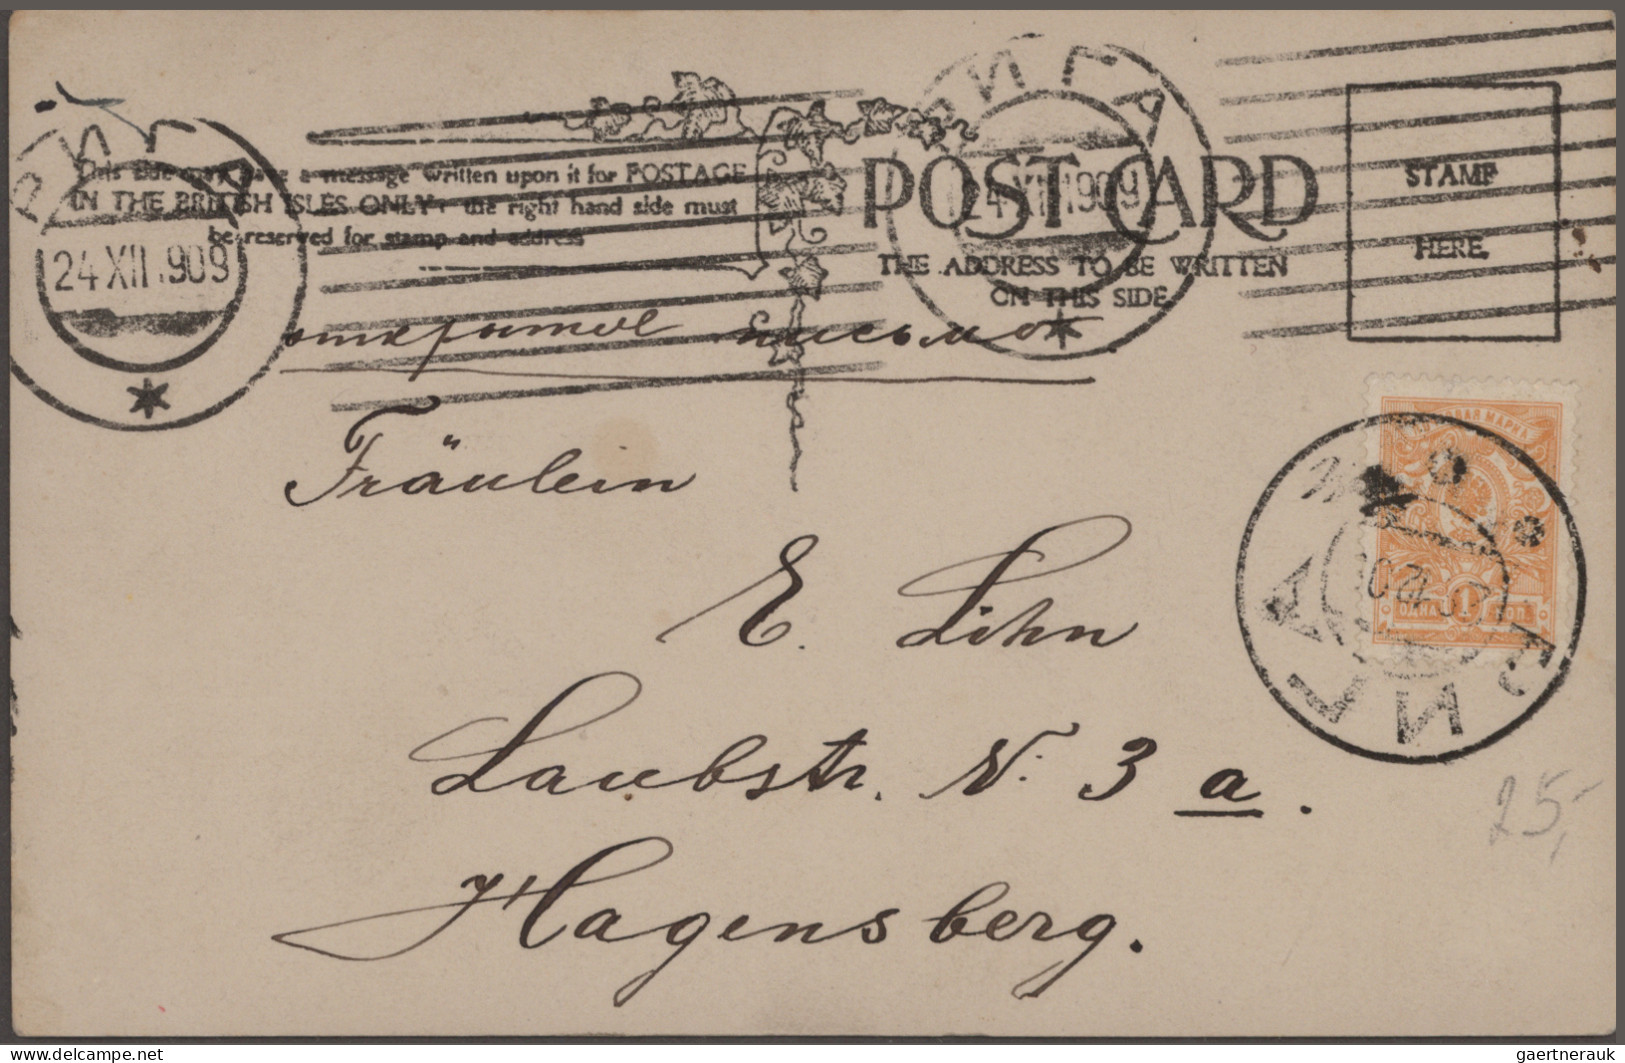 РИГА
24 XII 1909
This side may have a message written upon it for POSTAGE
IN THE BRITISH ISLES ONLY: the right hand side must
be reserved for stamp and address
РИГА
24 XII 1909
POST CARD
THE ADDRESS TO BE WRITTEN
ON THIS SIDE
STAMP
HERE.
открытое письмо.
Fräulein
E. Lihn
Laubstr. N: 3 a.
Hagensberg.
МАРКА
ОДНА 1 КОП.
РИГА
25,-
delcampe.net
gaertnerauk